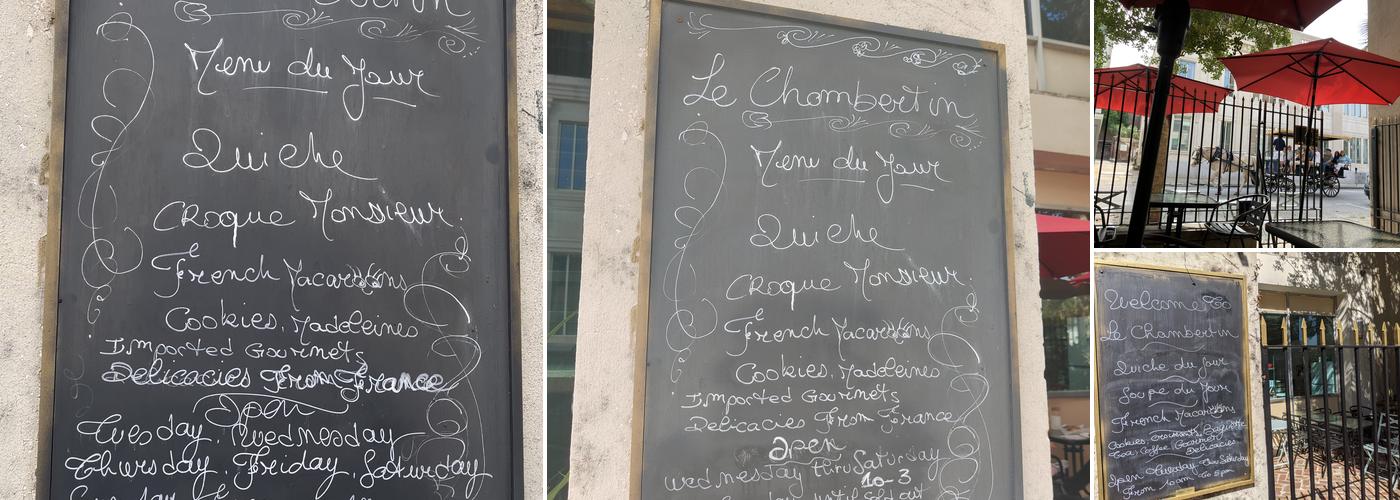 Menu du Jour
Quiche
Croque Monsieur
French Macarons
Cookies, Madeleines
Imported Gourmets
Delicacies From France
Open
Tuesday, Wednesday
Thursday, Friday, Saturday
Le Chambertin
Menu du Jour
Quiche
Croque Monsieur
French Macarons
Cookies, Madeleines
Imported Gourmets
Delicacies From France
Open
Wednesday thru Saturday
10-3
until sold out
Welcome To
Le Chambertin
Quiche du Jour
Soupe du Jour
French Macarons
Cookies, Croissants, Baguette
Tea, Coffee, Gourmet
Delicacies
Open Tuesday thru Saturday
From 10am to 5pm